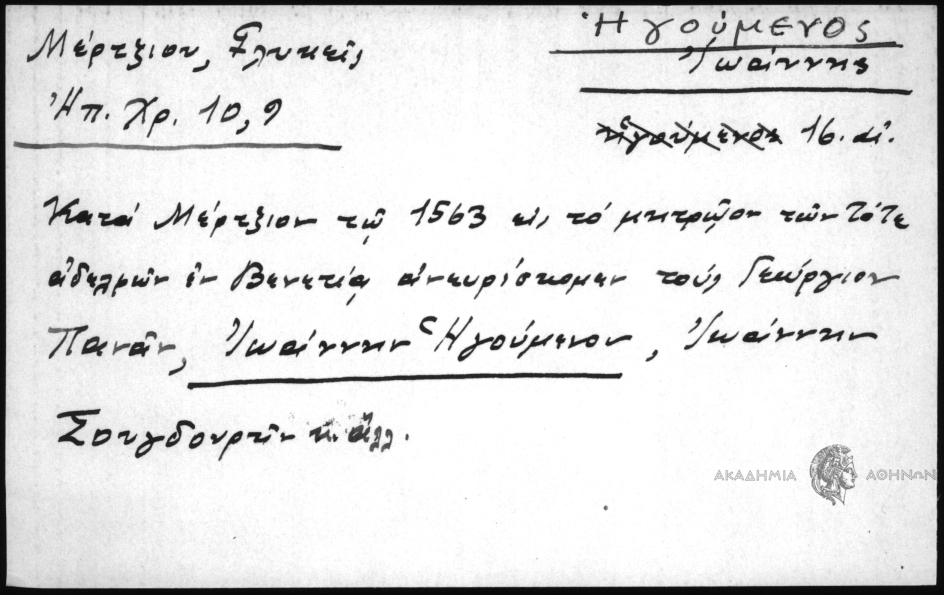 Ἡγούμενος
Ἰωάννης
ἡγούμενος 16. αἰ.
Μέρτζιον, Γλυκεῖς
Ἠπ. Χρ. 10, 9
Κατά Μέρτζιον τῷ 1563 εἰς τό μητρῷον τῶν τότε
ἀδελφῶν ἐν Βενετίᾳ ἀνευρίσκομεν τούς Γεώργιον
Πανᾶν, Ἰωάννην Ἡγούμενον, Ἰωάννην
Σουγδουρῆν κ. ἄλλ.
ΑΚΑΔΗΜΙΑ ΑΘΗΝΩΝ